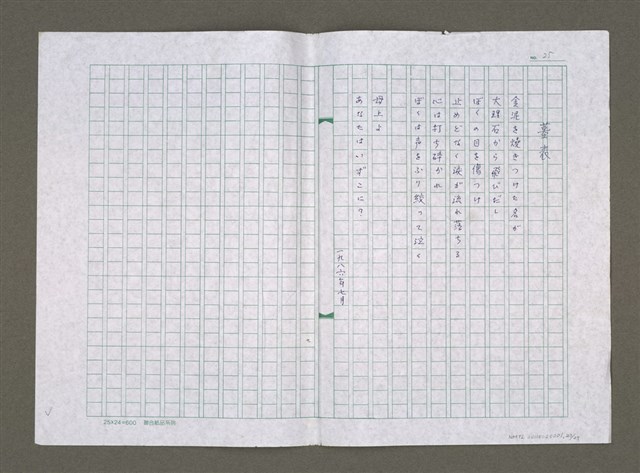 No. 25
墓表
金泥を焼きつけた名が
大理石から飛びだし
ぼくの目を傷つけ
止めどなく涙が流れ落ちる
心は打ち砕かれ
ぼくは声をふり絞って泣く
母上よ
あなたはいずこに?
一九八六年七月
25×24=600